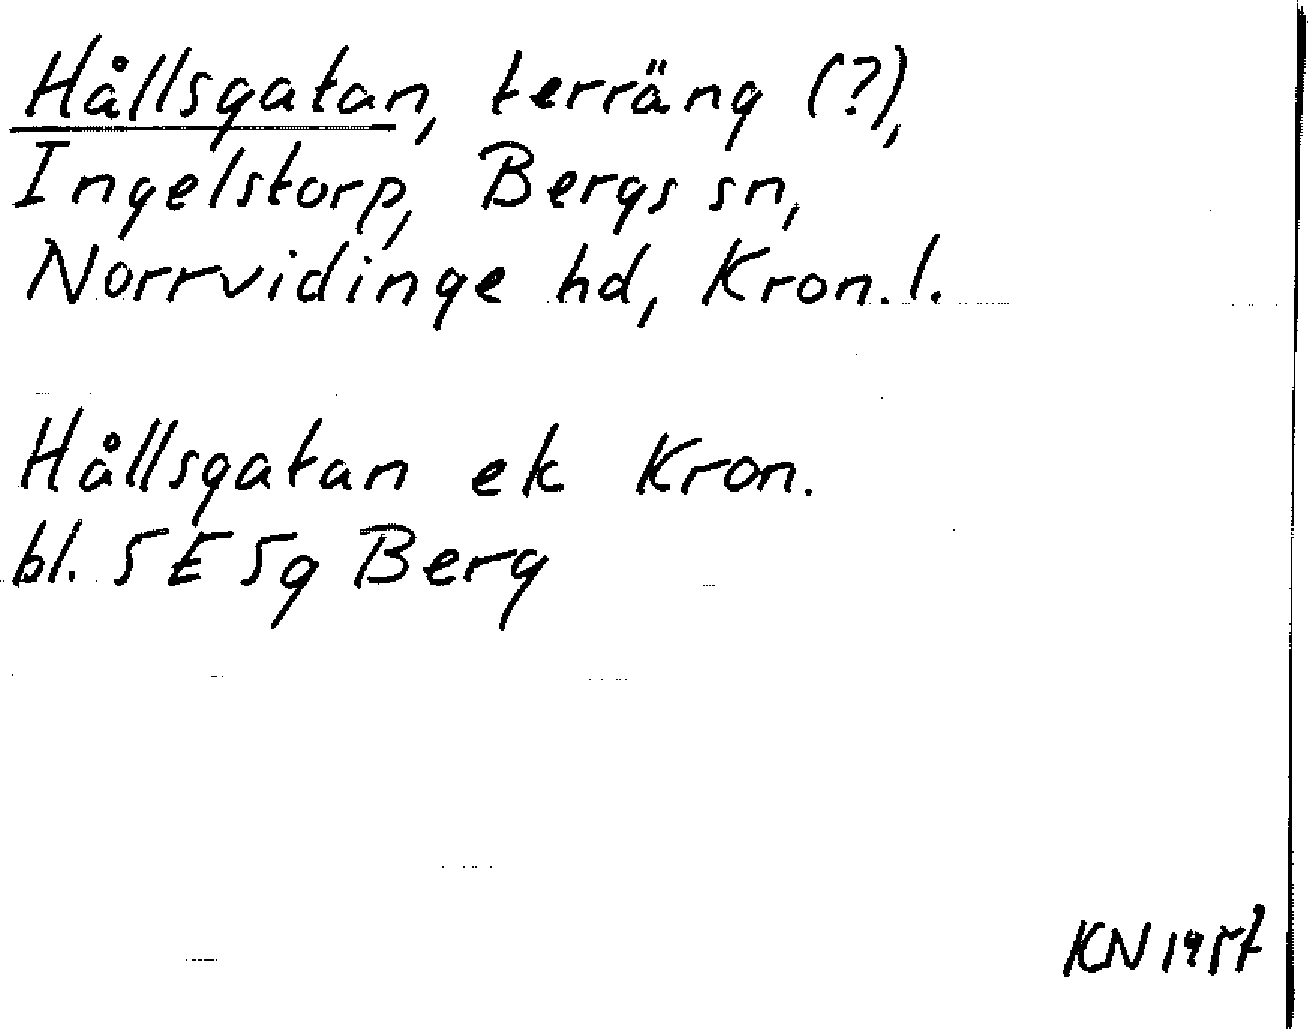 Hållsgatan, terräng (?),
Ingelstorp, Bergs sn,
Norrvidinge hd, Kron. l.
Hållsgatan ek Kron.
bl. 5E5g Berg
KN 1957